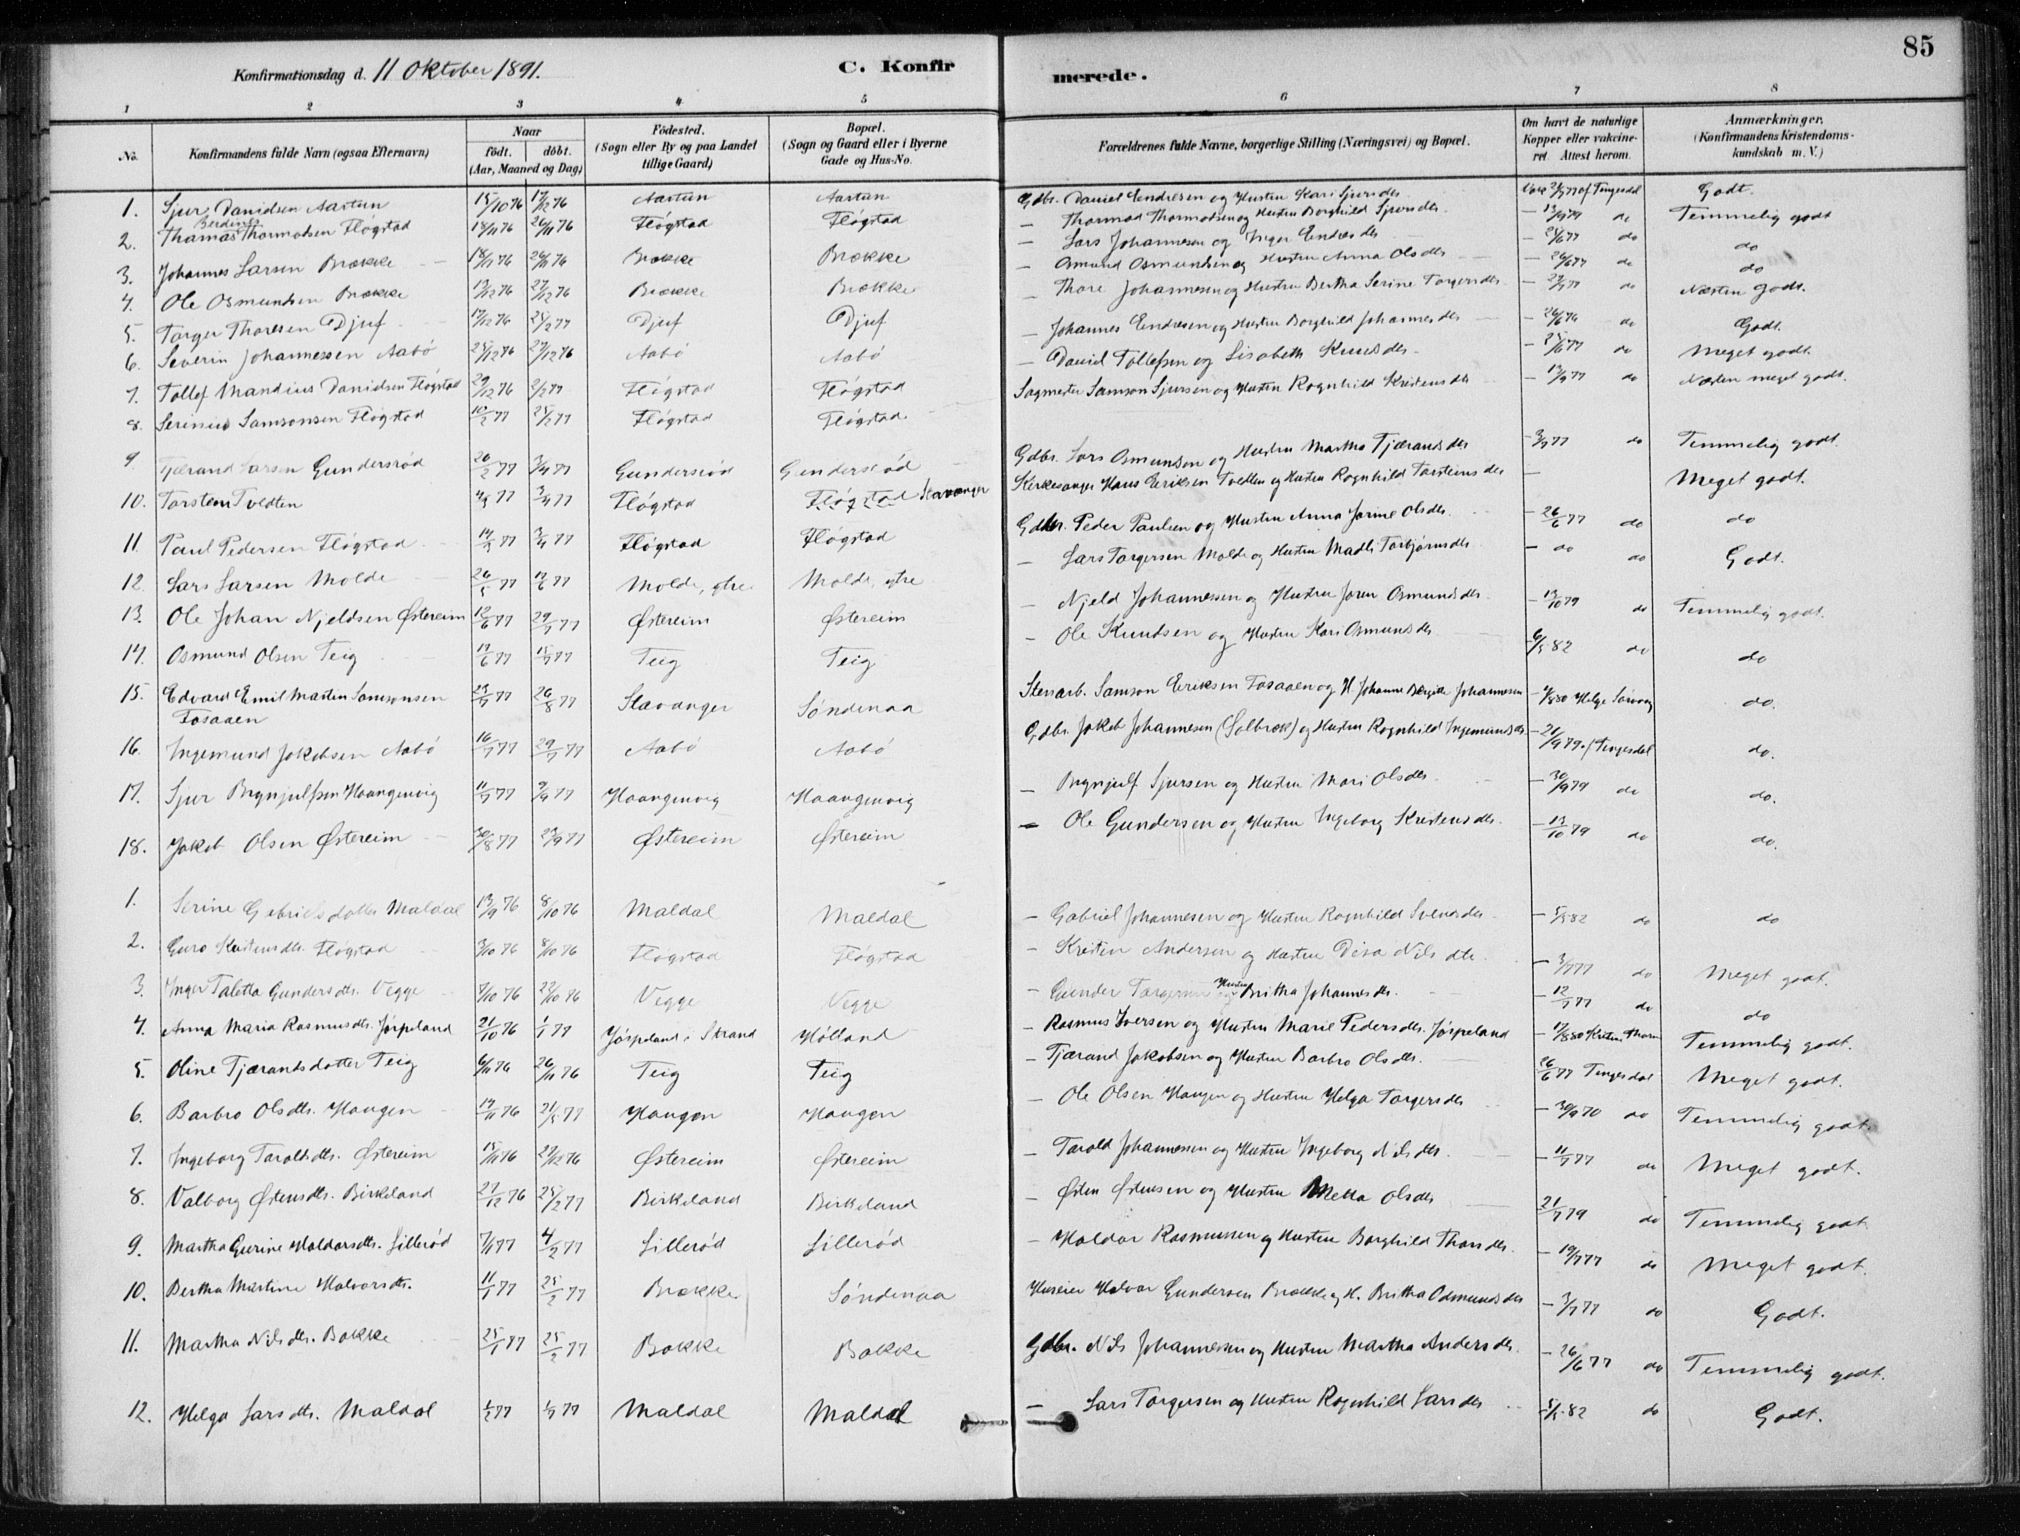 85
Konfirmationsdag d. 11 Oktober 1891. C. Konfirmerede.
1 2 3 4 5 6 7 8
No. Konfirmandens fulde Navn (ogsaa Efternavn) Naar født. døbt. (Aar, Maaned og Dag) Fødested. (Sogn eller By og paa Landet tillige Gaard) Bopæl. (Sogn og Gaard eller i Byerne Gade og Hus-No. Forældrenes fulde Navne, borgerlige Stilling (Næringsvei) og Bopæl. Om havt de naturlige Kopper eller vakcineret. Attest herom. Anmærkninger. (Konfirmandens Kristendomskundskab m. V.)
1. Sjur Danielsen Aartun 15/10 76 17/12 76 Aartun Aartun Gdbr. Daniel Endresen og Hustru Kari Sjursdtr. Tengesdal Godt.
2. Thomas Thormodsen Fløgstad 26/11 76 Fløgstad Fløgstad – Thormod Thormodsen og Hustru Borghild Sjursdtr. do Temmelig godt
3. Johannes Larsen Brække 26/11 76 Brække Brække – Lars Johannesen og Inger Endresdtr do do
4. Ole Osmundsen Brække 27/12 76 Brække Brække – Osmund Osmundsen og Hustru Anna Olsdtr do do
5. Torger Thoresen Djuf 25/2 77 Djuf Djuf – Thore Johannesen og Hustru Bertha Serine Torgersdtr do Næsten godt.
6. Severin Johannessen Aabø 25/12 76 27/12 76 Aabø Aabø – Johannes Endresen og Hustru Borghild Johannesdtr do Godt.
7. Tollef Mandius Danielsen Fløgstad 29/12 76 2/2 77 Fløgstad Fløgstad – Daniel Tollefsen og Lisabeth Knudsdtr. do Meget godt.
8. Serinius Samsonsen Fløgstad 10/2 77 25/2 77 Fløgstad Fløgstad Sagmester Samson Sjursen og Hustru Rognhild Kristensdtr do Næsten meget godt.
9. Tjærand Larsen Gundersrød 26/2 77 3/4 77 Gundersrød Gundersrød Gdbr. Lars Osmundsen og Hustru Martha Tjærandsdtr do Temmelig godt.
10. Torsten Tveldten 3/4 77 Fløgstad Fløgstad Stavanger Kirkesanger Hans Eriksen Tveldten og Hustru Rognhild Torsteinsdtr – Meget godt.
11. Paul Pedersen Fløgstad 3/4 77 Fløgstad Fløgstad Gdbr. Peder Paulsen og Hustru Anna Jorine Olsdtr. – 26/6 77 do do
12. Lars Larsen Molde 26/5 77 Molde, ytre Molde, ytre – Lars Torgersen Molde og Hustru Madli Torbjørnsdtr – do do Godt.
13. Ole Johan Njeldsen Østereim 12/6 77 29/7 77 Østereim Østereim – Njeld Johannessen og Hustru Joren Osmundsdtr. – 13/10 79 do Temmelig godt.
14. Osmund Olsen Teig 15/7 77 Teig Teig – Ole Knudsen og Hustru Kari Osmundsdtr 6/5 82 do do
15. Edvard Emil Martin Samsonsen 23/7 77 26/8 77 Stavanger Søndenaa Stenarb. Samson Eriksen Fosaaen og H. Johanne Bergitte Johannesen do.
Fosaaen
16. Ingemund Jakobsen Aabø 16/7 77 29/7 77 Aabø Aabø Gdbr. Jakob Johannesen (Solbræk) og Hustru Rognhild Ingemundsdtr – 21/9 79. (Tengesdal do.
17. Sjur Brynjulfsen Haangenvig 11/7 77 9/9 77 Haangenvig Haangenvig – Brynjulf Sjursen og Hustru Mari Olsdtr. – 30/9 79 do do.
18. Jakob Olsen Østereim 30/8 77 23/9 77 Østereim Østereim – Ole Gundersen og Hustru Ingeborg Kristensdtr. – 13/10 79 do do.
1. Serine Gabrielsdotter Maldal 13/9 76 8/10 76 Maldal Maldal – Gabriel Johannesen og Hustru Rognhild Svensdtr. – 5/5 82 do do
2. Guro Kristensdtr. Fløgstad 3/10 76 8/10 76 Fløgstad Fløgstad – Kristen Andersen og Hustru Disa Nilsdtr. – 3/7 77 do Meget godt.
3. Inger Taletta Gundersdtr. Vegge 7/10 76 22/10 76 Vegge Vegge – Gunder Torgersen Hustru Britha Johannesdtr. – 12/7 77 do do
4. Anna Maria Rasmusdtr. Jørpeland 21/10 76 1/1 77 Jørpeland i Strand Hølland – Rasmus Iversen og Hustru Marie Pedersdtr. Jørpeland Temmelig godt.
5. Oline Tjærandsdotter Teig 6/11 76 26/11 76 Teig Teig – Tjærand Jakobsen og Hustru Barbro Olsdtr. 26/6 77 Tengesdal Meget godt.
6. Barbro Olsdtr. Haugen 21/5 77 Haugen Haugen – Ole Olsen Haugen og Hustru Helga Torgersdtr do Temmelig godt.
7. Ingeborg Taroldsdtr. Østereim 15/11 76 Østereim Østereim – Tarold Johannesen og Hustru Ingeborg Nilsdtr. – 11/7 77 do Meget godt.
8. Valborg Østensdtr. Birkeland 27/12 76 25/2 77 Birkeland Birkeland – Østen Østensen og Hustru Metta Olsdtr 21/7 79 do Temmelig godt.
9. Martha Gurine Haldorsdtr. Lillerød 7/1 77 4/2 77 Lillerød Lillerød – Haldor Rasmussen og Hustru Borghild Thorsdtr. – 19/7 77 do Meget godt.
10. Bertha Martine Halvorsdtr. 11/1 77 25/2 77 Brække Søndenaa Huseier Halvor Gundersen Brække og H. Britha Odmundsdtr – 3/7 77 do Godt.
11. Martha Nilsdtr. Bakke 25/1 77 25/2 77 Bakke Bakke Gdbr. Nils Johannesen og Hustru Martha Andersdtr. – 26/6 77 do Temmelig godt.
12. Helga Larsdtr. Maldal Maldal Maldal – Lars Torgersen og Hustru Rognhild Larsdtr – 5/5 82 do Godt.